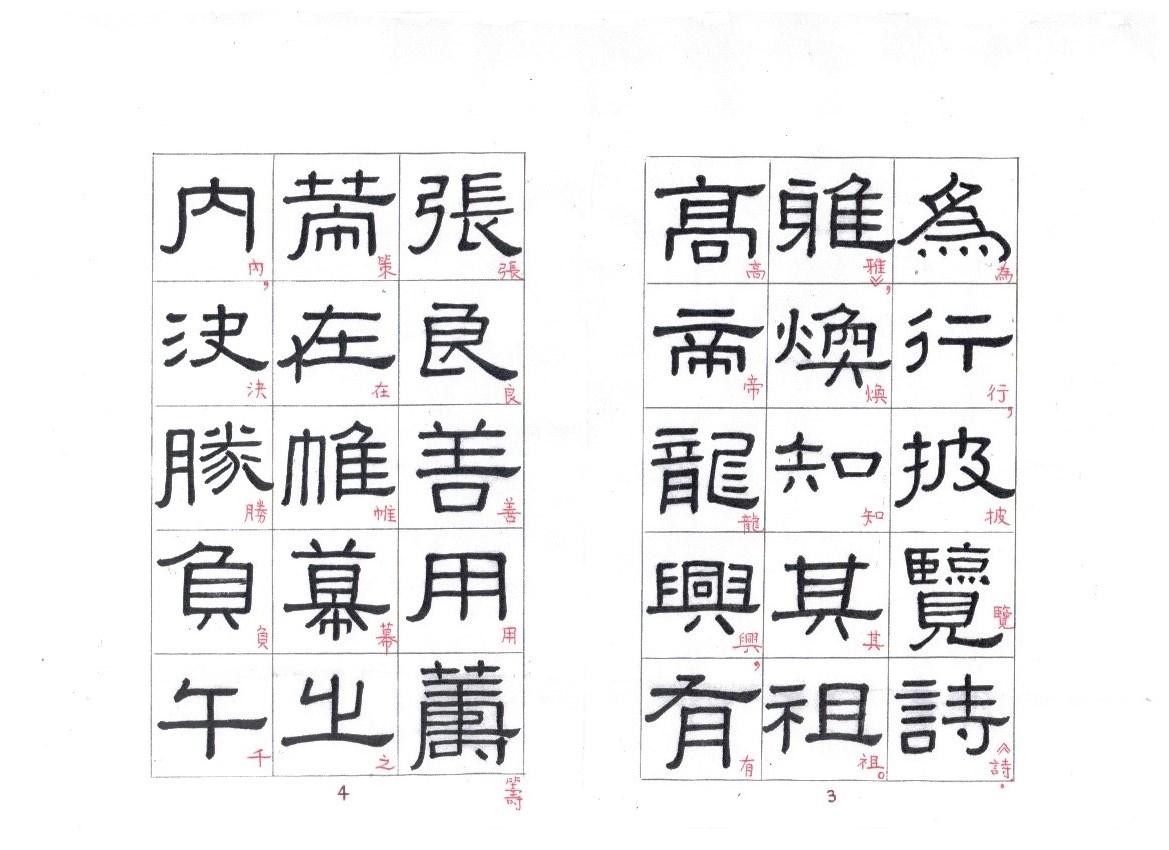 為行披覽詩
為行，披覽《詩．
雅煥知其祖
雅》，煥知其祖。
高帝龍興有
高帝龍興，有
3
張良善用籌
張良善用籌
策在帷幕之
策在帷幕之
內決勝負千
內，決勝負千
4